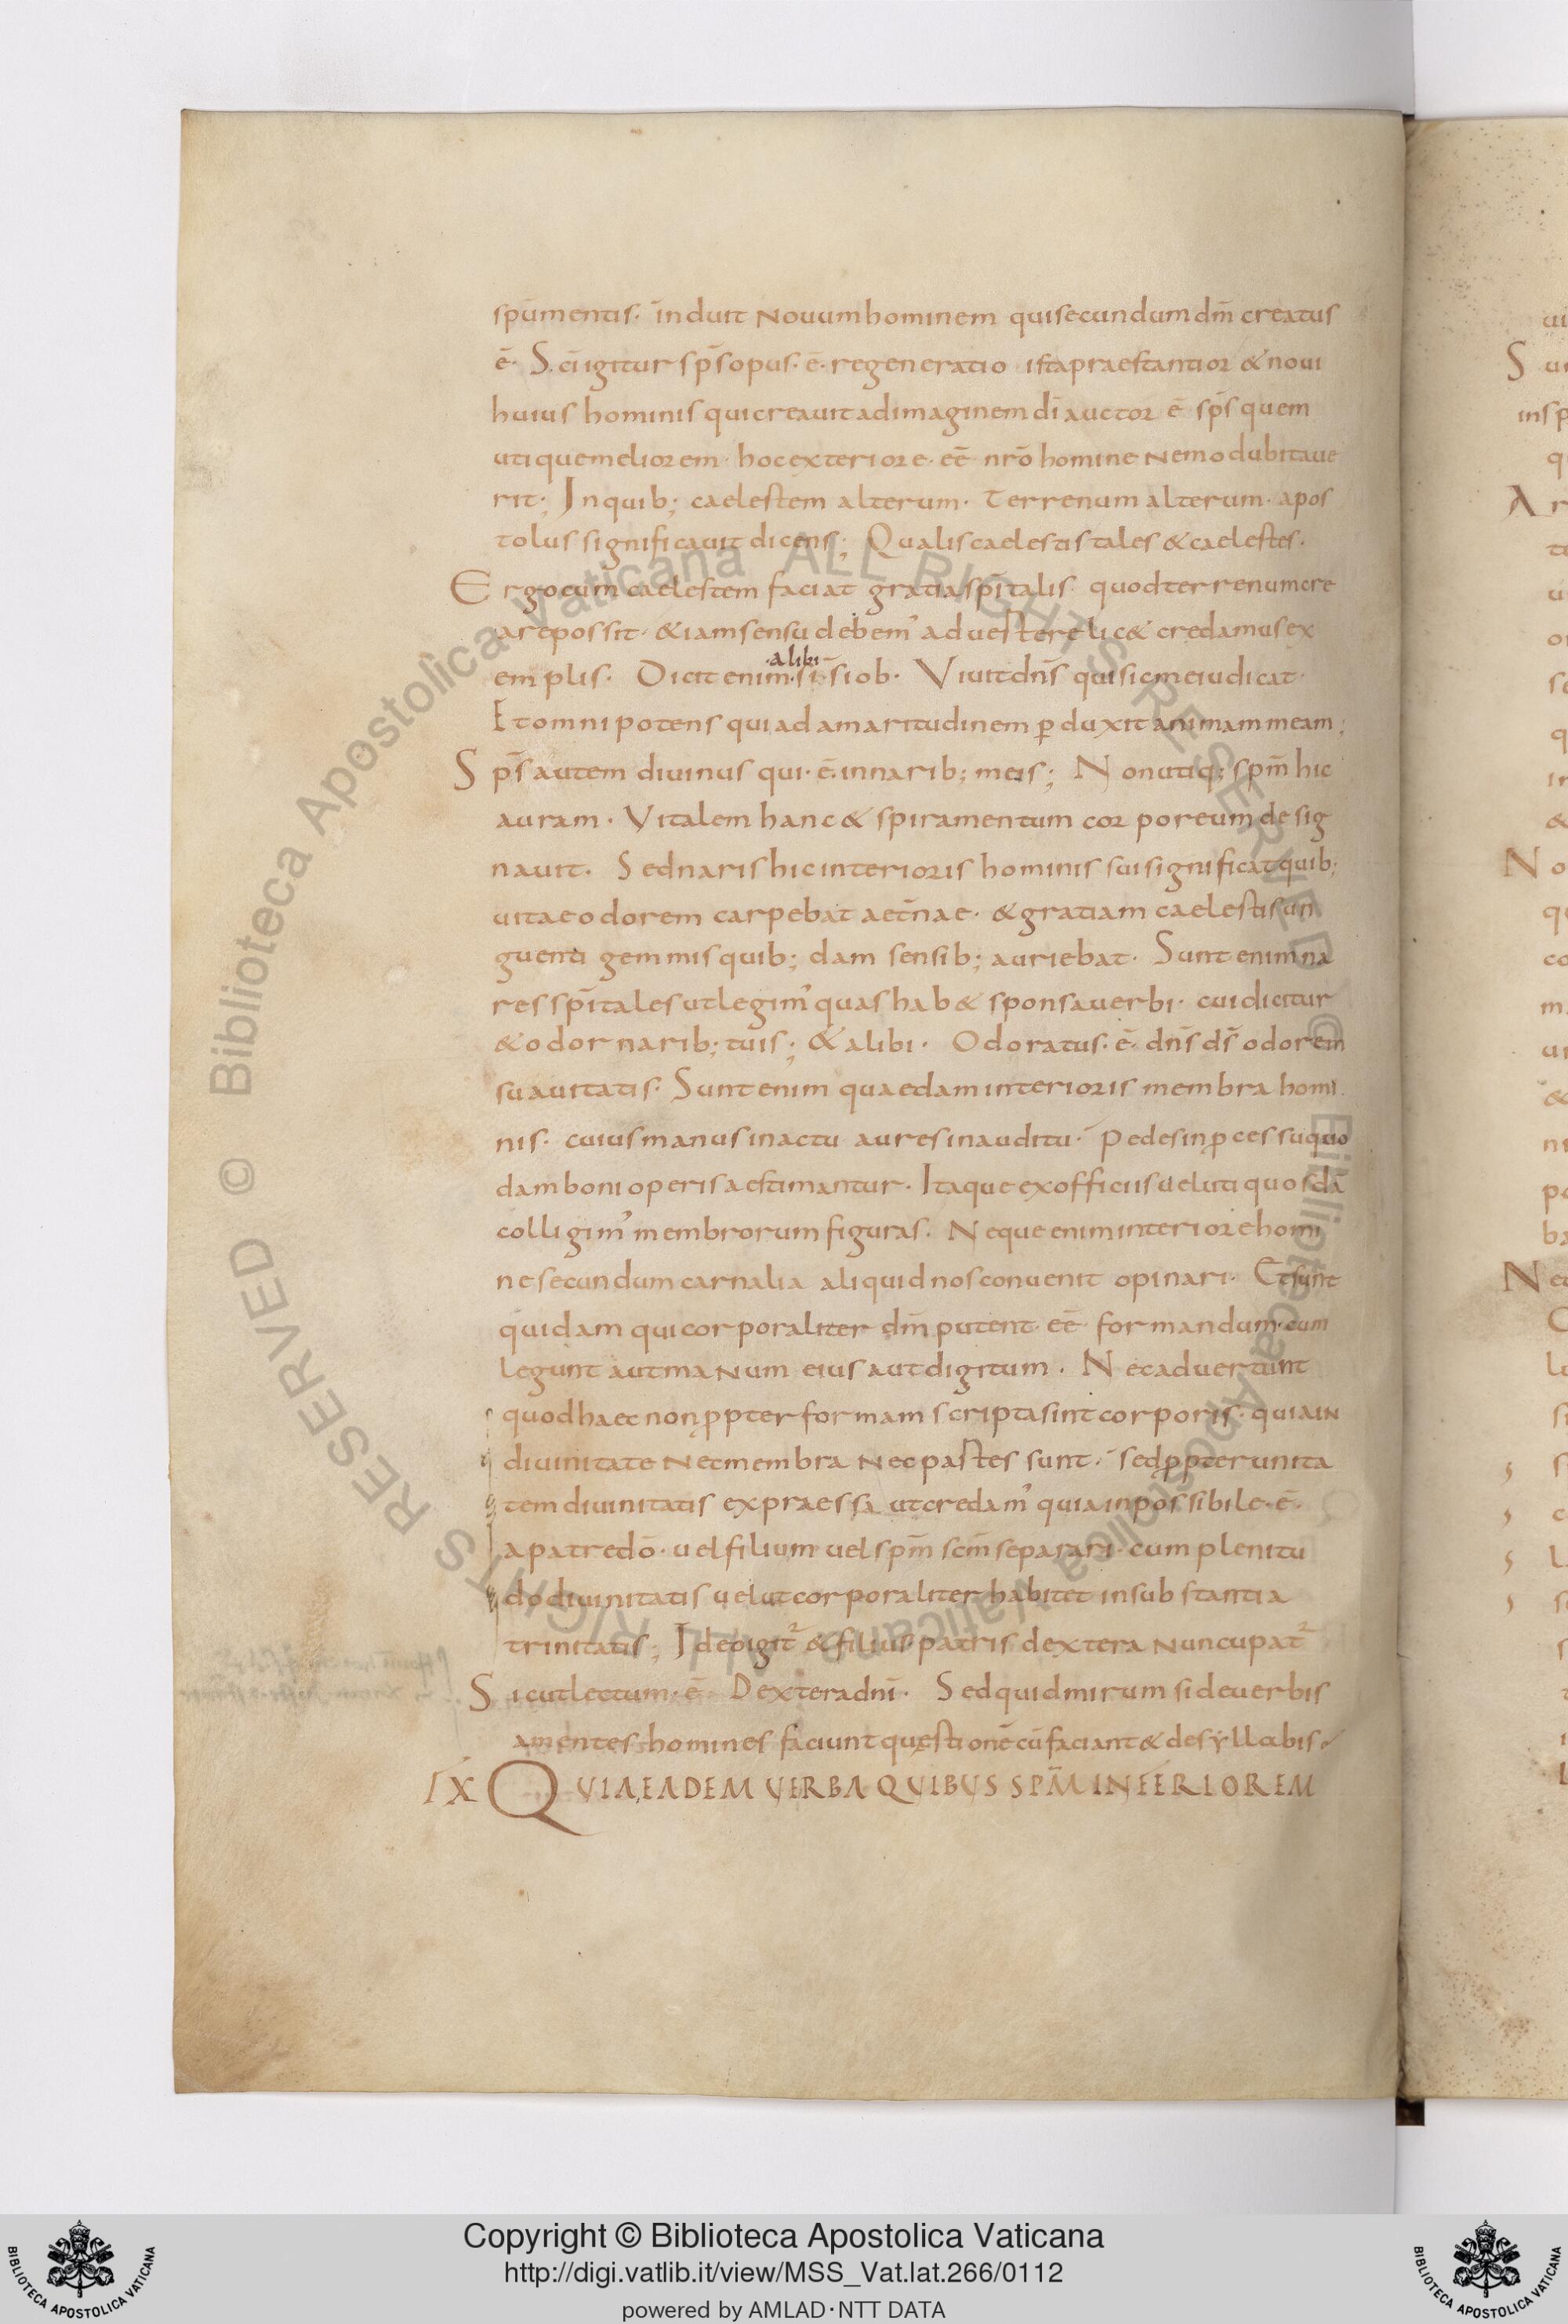 spūmentis. induit novum hominem qui secundum dm̄ creatus
ē. S. ci igitur sps̄ opus. ē. regeneratio ista praestantior & novi
huius hominis qui creavit ad imaginem dī auctor ē sps̄ quem
utique meliorem. hoc exteriore. eē nrō homine nemo dubitave
rit; In quib; caelestem alterum. Terrenum alterum. apos
tolus significavit dicens; Qualis caelestis tales & caelestes.
Ergo cum caelestem faciat gratia spītalis quod terrenum cre
are possit. &iam sensu debem' advertere lic& credamus ex
emplis. Dicit enim. sī. s iob. Vivit dn̄s qui sic me iudicat.
alibi
Et omnipotens qui ad amaritudinem ꝑduxit animam meam;
Sps̄ autem divinus qui. ē. in narib; meis; Non utiq; spm̄ hic
auram. Vitalem hanc & spiramentum corporeum desig
navit. Sed naris hic interioris hominis sui significat quib;
vitae odorem carpebat aet̄nae. & gratiam caelestis un
guenti gemmis quib; dam sensib; auriebat. Sunt enim na
res spītales ut legim' quas hab& sponsa verbi. cui dicitur
& odor narib; tuis; & alibi. Odoratus. ē. dn̄s ds̄ odorem
suavitatis. Sunt enim quaedam interioris membra homi
nis. cuius manus in actu aures in auditu. Pedes in ꝓcessu quo
dam boni operis aestimantur. Itaque ex officiis veluti quosdā
colligim' membrorum figuras. Neque enim interiore homi
ne secundum carnalia aliquid nos convenit opinari. Et sunt
quidam qui corporaliter dm̄ putent. eē formandum. cum
legunt aut manum eius aut digitum. Nec advertunt
quod haec non ꝓpter formam scripta sint corporis. quia in
divinitate nec membra nec partes sunt. sed ꝓpter unita
tem divinitatis expraessa ut credam' quia inpossibile. ē.
a patre dō. vel filium vel spm̄ scm̄ separari. cum plenitu
do divinitatis velut corporaliter habitet in substantia
trinitatis; Ideo igit² & filius patris dextera nuncupat²
Sicut lectum. ē. Dextera dnī. Sed quid mirum si de verbis
amentes homines faciunt questionē cū faciant & de syllabis
IX QUIA EADEM VERBA QUIBUS SPM̄ INFERIOREM
Copyright © Biblioteca Apostolica Vaticana
http://digi.vatlib.it/view/MSS_Vat.lat.266/0112
powered by AMLAD·NTT DATA
BIBLIOTECA APOSTOLICA VATICANA
BIBLIOTECA APOSTOLICA VATICANA
© Biblioteca Apostolica Vaticana ALL RIGHTS RESERVED © Biblioteca Apostolica Vaticana ALL RIGHTS RESERVED